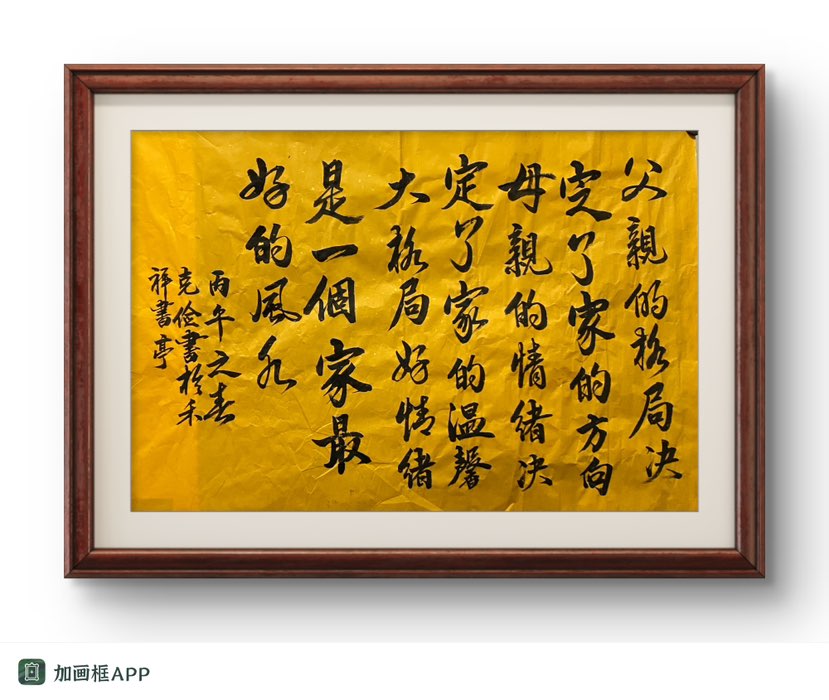 父親的格局决
定了家的方向
母親的情緒决
定了家的温馨
大格局好情緒
是一個家最
好的風水
丙午之春
克俭書於禾
祥書亭
加画框APP